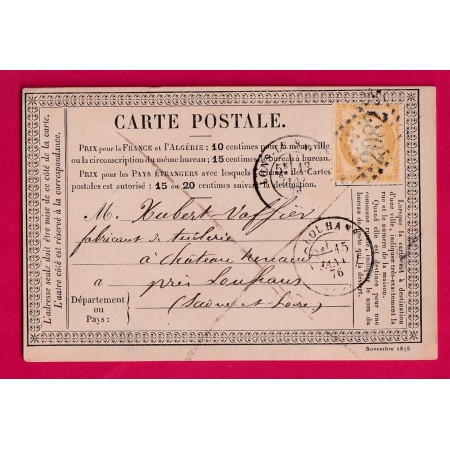 CARTE POSTALE.
PRIX pour la FRANCE et l'ALGÉRIE: 10 centimes pour la même ville
ou la circonscription du même bureau; 15 centimes de bureau à bureau.
PRIX pour les PAYS ÉTRANGERS avec lesquels l'échange des Cartes
postales est autorisé : 15 ou 20 centimes suivant la destination.
M. Hubert Vaffier
fabricant de tuilerie
à Château Renaud
à près Louhans
(Saône et Loire)
Département
ou
Pays:
L'adresse seule doit être mise de ce côté de la carte.
L'autre côté est réservé à la correspondance.
Lorsque la carte est à destination
d'une ville, indiquer très-exactement la
rue et le numéro de la maison.
Quand elle est destinée pour une
commune rurale, indiquer le nom du
bureau de poste qui la dessert.
LONS-L
LOUHANS
15
76
Novembre 1875